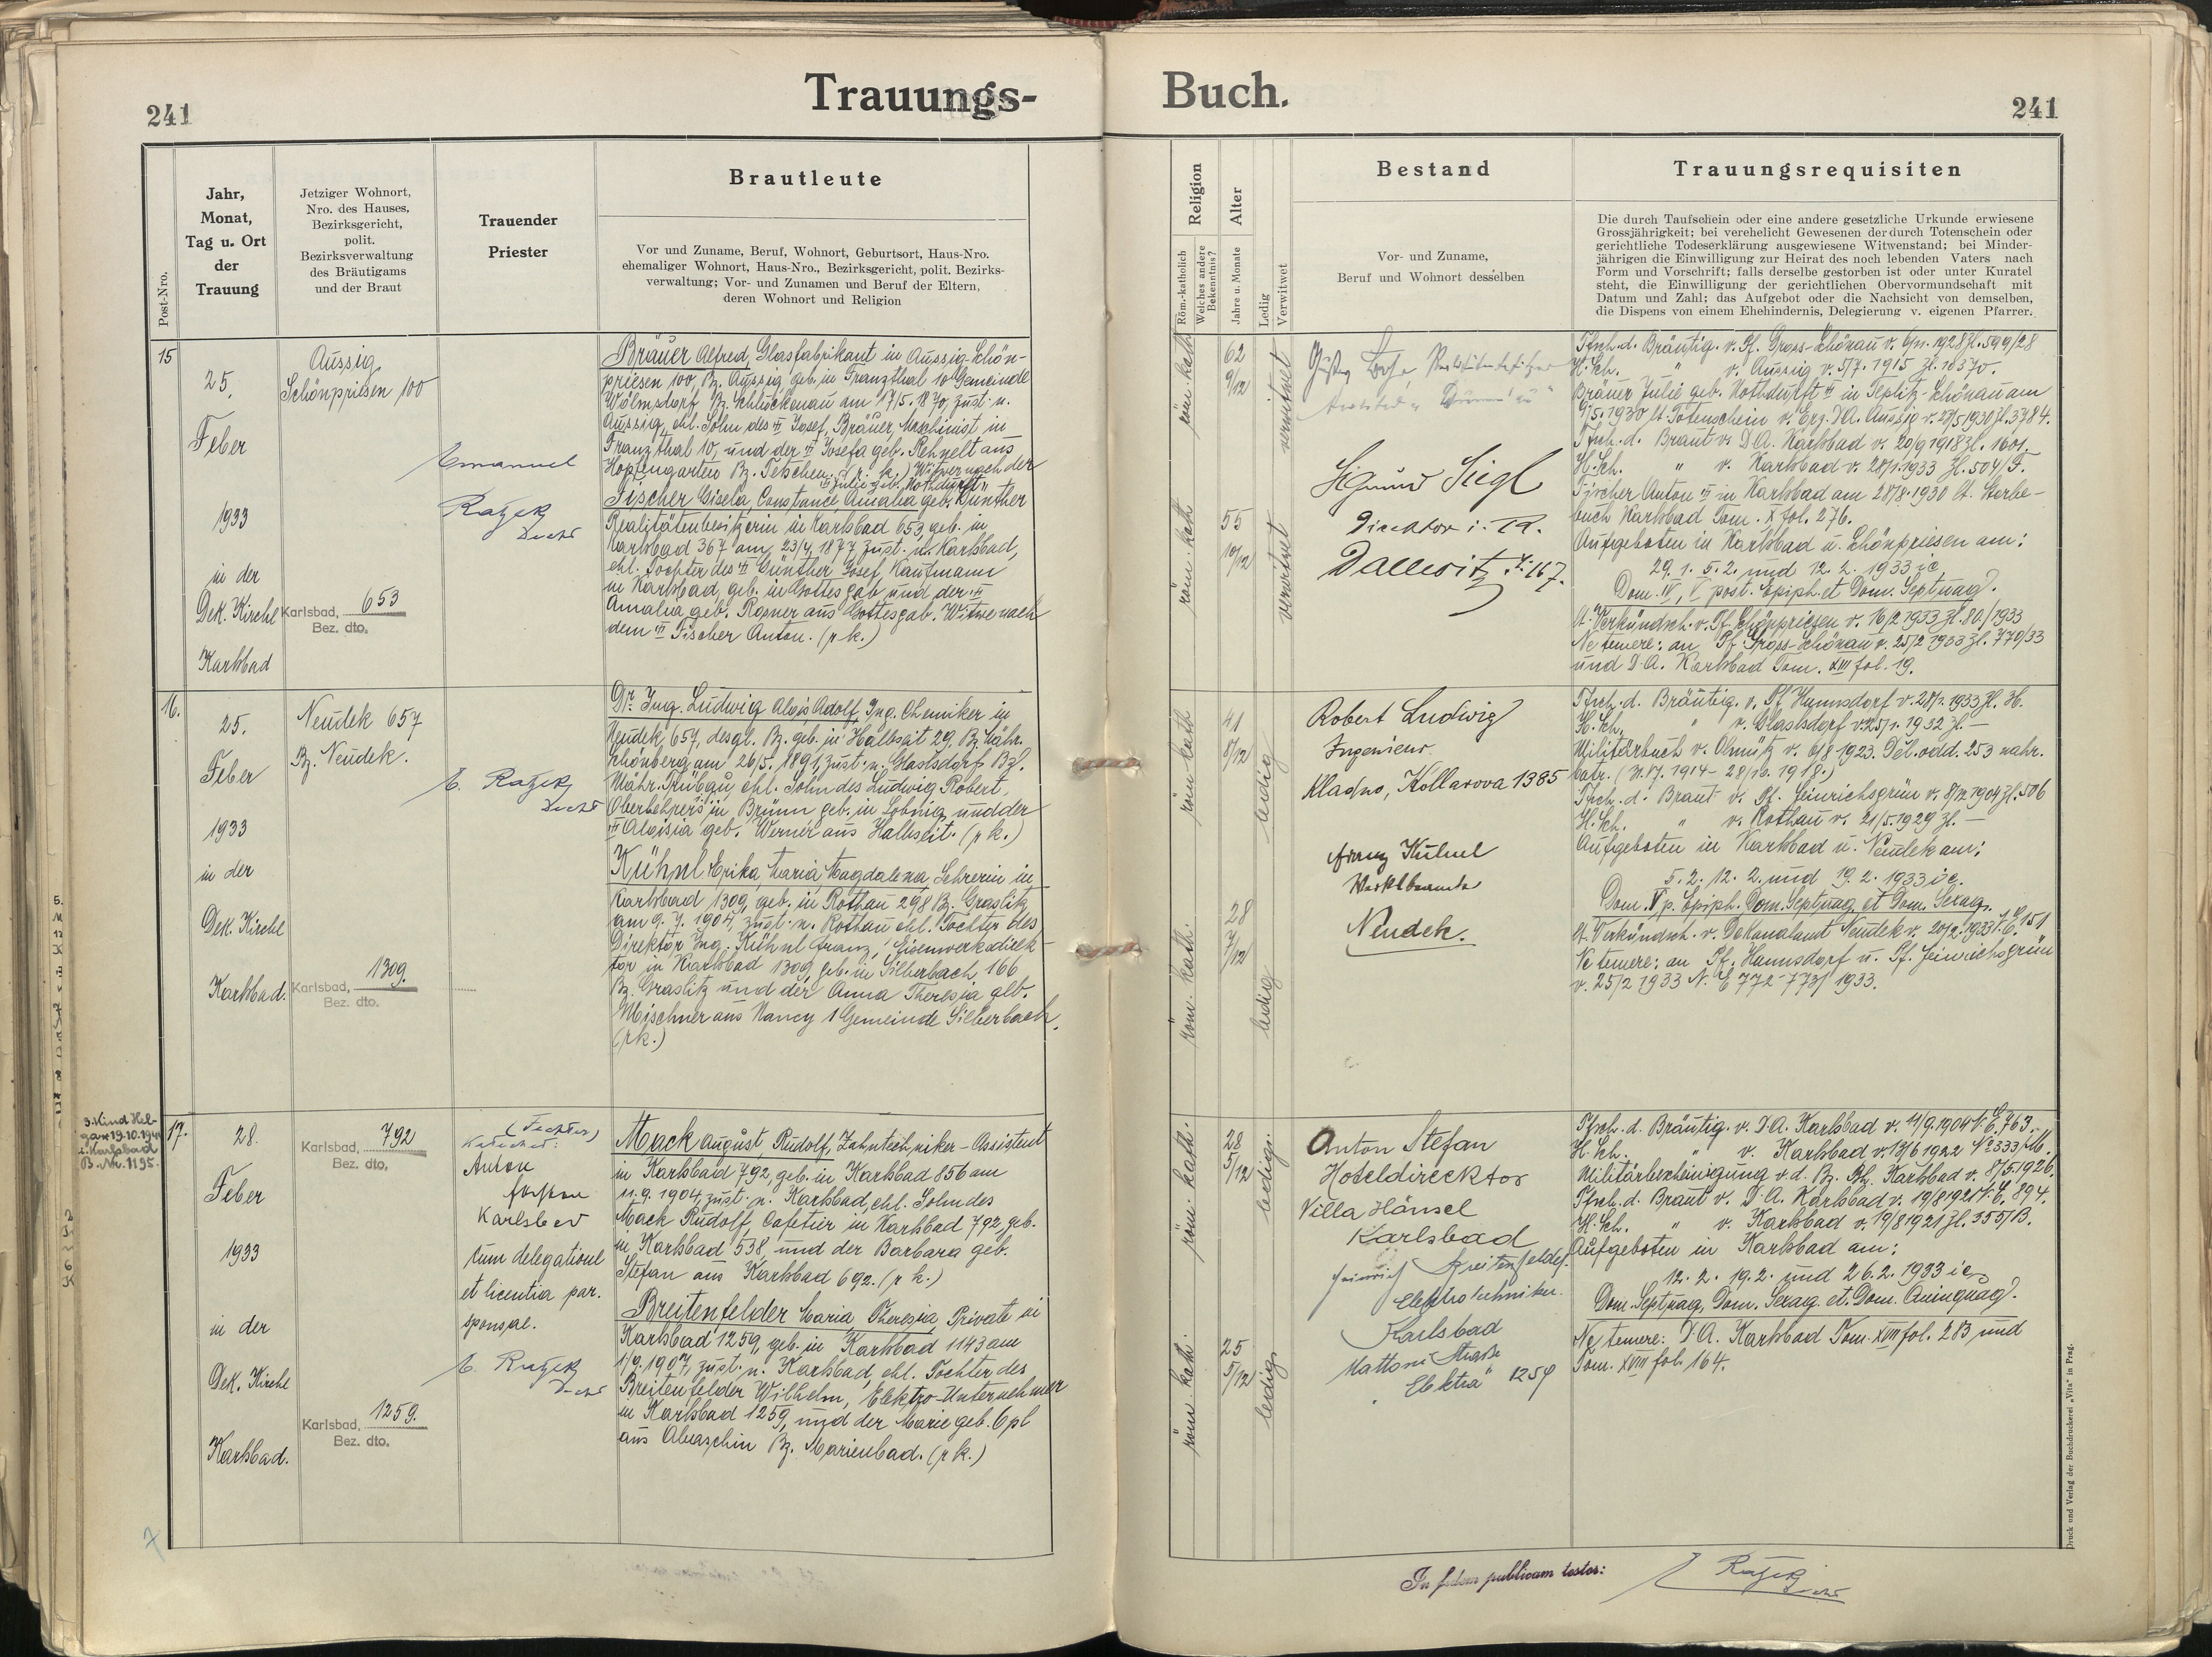 241
Trauungs-
Buch.
241
Post-Nro.
Jahr,
Monat,
Tag u. Ort
der
Trauung
Jetziger Wohnort,
Nro. des Hauses,
Bezirksgericht,
polit.
Bezirksverwaltung
des Bräutigams
und der Braut
Trauender
Priester
Brautleute
Vor und Zuname, Beruf, Wohnort, Geburtsort, Haus-Nro.
ehemaliger Wohnort, Haus-Nro., Bezirksgericht, polit. Bezirks-
verwaltung; Vor- und Zunamen und Beruf der Eltern,
deren Wohnort und Religion
Religion
Röm.-katholich
Welches andere
Bekenntnis?
Alter
Jahre u. Monate
Ledig
Verwitwet
Bestand
Vor- und Zuname,
Beruf und Wohnort desselben
Trauungsrequisiten
Die durch Taufschein oder eine andere gesetzliche Urkunde erwiesene
Grossjährigkeit; bei verehelicht Gewesenen der durch Totenschein oder
gerichtliche Todeserklärung ausgewiesene Witwenstand; bei Minder-
jährigen die Einwilligung zur Heirat des noch lebenden Vaters nach
Form und Vorschrift; falls derselbe gestorben ist oder unter Kuratel
steht, die Einwilligung der gerichtlichen Obervormundschaft mit
Datum und Zahl; das Aufgebot oder die Nachsicht von demselben,
die Dispens von einem Ehehindernis, Delegierung v. eigenen Pfarrer.
15
25.
Feber
1933
in der
Dek. Kirche
Karlsbad
Aussig
Schönpriesen 100
Karlsbad, 653
Bez. dto.
Emanuel
Ratzek
Bräuer Alfred, Glasfabrikant in Aussig-Schön-
priesen 100, Bz. Aussig geb. in Franzthal 10 Gemeinde
Wölmsdorf Bz. Schluckenau am 17/5. 1870, zust. n.
Aussig, ehl. Sohn des Josef Bräuer, Maschinist in
Franzthal 10, und der Josefa geb. Rehnelt aus
Hopfengarten Bz. Tetschen. (r. k.) Witwer nach der
Julie geb. Nothdurft.
Fischer Gisela, Constance, Amalia geb. Günther
Realitätenbesitzerin in Karlsbad 653, geb. in
Karlsbad 367 am 23/4. 1877 zust. n. Karlsbad,
ehl. Tochter des Günther Josef, Kaufmann
in Karlsbad, geb. in Gottesgab und der
Amalia geb. Rosner aus Gottesgab. Witwe nach
dem Fischer Anton. (r. k.)
röm. kath.
62
9/12
verwitwet
röm. kath
55
10/12
verwitwet
Sigmund Siegl
Direktor i. R.
Dallwitz N. 167.
Tfsch. d. Bräutig. v. Pf. Gross-Schönau v. 6/11. 1928 Zl. 599/28
H. Sch. " v. Aussig v. 5/7. 1915 Zl. 10370.
Bräuer Julie geb. Nothdurft in Teplitz-Schönau am
9/5. 1930 lt. Totenschein v. Erz. D.A. Aussig v. 27/5 1930 Zl. 3784.
Tfsch. d. Braut v. D.A. Karlsbad v. 20/9 1918 Zl. 1601.
H. Sch. " v. Karlsbad v. 28/1. 1933 Zl. 504/F.
Fischer Anton in Karlsbad am 28/8. 1930 lt. Sterbe-
buch Karlsbad Tom. X fol. 276.
Aufgeboten in Karlsbad u. Schönpriesen am:
29. 1. 5. 2. und 12. 2. 1933 ie.
Dom. IV, V post. Epiph. et Dom. Septuag.
lt. Verkündsch. v. Pf. Schönpriesen v. 16/2 1933 Zl. 80/1933
Ne temere: an Pf. Gross-Schönau v. 25/2 1933 Zl. 770/33
und D.A. Karlsbad Tom. XIII fol. 19.
16.
25.
Feber
1933
in der
Dek. Kirche
Karlsbad.
Neudek 657
Bz. Neudek.
Karlsbad, 1309.
Bez. dto.
E. Ratzek
Dr. Ing. Ludwig Alois Adolf, Ing. Chemiker in
Neudek 657, desgl. Bz. geb. in Halbseit 29, Bz. Mähr.
Schönberg am 26/5. 1891, zust. n. Glaslsdorf Bz.
Mähr. Trübau, ehl. Sohn des Ludwig Robert,
in Brünn geb. in Lobnig und der
Aloisia geb. Werner aus Halbseit. (r k.)
Kühnl Erika Maria Magdalena, Lehrerin in
Karlsbad 1309, geb. in Rothau 298 Bz. Graslitz
am 9. 7. 1904, zust. n. Rothau ehl. Tochter des
Direktor Ing. Kühnl Franz, Eisenwerkdirek-
tor in Karlsbad 1309, geb. in Silberbach 166
Bz. Graslitz und der Anna Theresia geb.
Mischner aus Nancy 1 Gemeinde Silberbach.
(r k.)
röm. kath
41
8/12
ledig
röm. kath.
28
7/12
ledig
Robert Ludwig
Ingenieur
Kladno, Kollarova 1385
Franz Kühnel
Werksbeamte
Neudek.
Tfsch. d. Bräutig. v. Pf. Hannsdorf v. 28/1. 1933 Zl. 36.
H. Sch. " v. Glaslsdorf v. 25/1. 1932 Zl. –
Militärbuch v. Olmütz v. 6/8 1923. Děl. odd. 253 nahr.
batr. (31.7. 1914 – 28/10. 1918.)
Tfsch. d. Braut v. Pf. Heinrichsgrün v. 8/12 1904 Zl. 506
H. Sch. " v. Rothau v. 21/5. 1929 Zl. –
Aufgeboten in Karlsbad u. Neudek am:
5. 2. 12. 2. und 19. 2. 1933 ie.
Dom. V p. Epiph. Dom. Septuag. et Dom. Sexag.
lt. Verkündsch. v. Dekanalamt Neudek v. 20/2. 1933 N. E. 151
Ne temere: an Pf. Hannsdorf u. Pf. Heinrichsgrün
v. 25/2 1933 N. E 772-773/ 1933.
3. Kind Hel-
ga * 19.10.1941
i. Karlsbad
B. Nr. 1195.
17.
28.
Feber
1933
in der
Dek. Kirche
Karlsbad.
Karlsbad, 792
Bez. dto,
Karlsbad, 1259.
Bez. dto.
Anton
Karlsbad
cum delegatione
et licentia par.
sponsae.
E. Ratzek
Mack August, Rudolf, Zahntechniker-Assistent
in Karlsbad 792, geb. in Karlsbad 856 am
11. 9. 1904, zust. n. Karlsbad, ehl. Sohn des
Mack Rudolf, Cafetier in Karlsbad 792, geb.
in Karlsbad 538, und der Barbara geb.
Stefan aus Karlsbad 692. (r k.)
Breitenfelder Maria, Theresia, Private in
Karlsbad 1259, geb. in Karlsbad 1143 am
1/9. 1907, zust. n. Karlsbad, ehl. Tochter des
Breitenfelder Wilhelm, Elektro-Unternehmer
in Karlsbad 1259, und der Marie geb. Epl
aus Abaschin Bz. Marienbad. (r k.)
röm. kath.
28
5/12
ledig.
röm. kath.
25
5/12
ledig.
Anton Stefan
Hoteldirecktor
Villa Hänsel
Karlsbad
Heinrich Breitenfelder.
Elektrotechniker.
Karlsbad
Mattoni Straße
"Elektra" 1259
Tfsch. d. Bräutig. v. D.A. Karlsbad v. 11/9. 1904 N. E. 763.
H. Sch. " v. Karlsbad v. 13/6 1922 No 333/M.
Militärbescheinigung v. d. Bz. Bh. Karlsbad v. 8/5. 1926.
Tfsch. d. Braut v. D.A. Karlsbad v. 19/8 1921 N. E. 894.
H. Sch. " v. Karlsbad v. 19/8 1921 Zl. 355/B.
Aufgeboten in Karlsbad am:
12. 2. 19. 2. und 26. 2. 1933 ie.
Dom. Septuag, Dom. Sexag. et. Dom. Quinquag.
Ne temere: D.A. Karlsbad Tom. XVII fol. 283 und
Tom. XVIII fol. 164.
In fidem publicam testor:
E Ratzek
Druck und Verlag der Buchdruckerei „Vita“ in Prag.